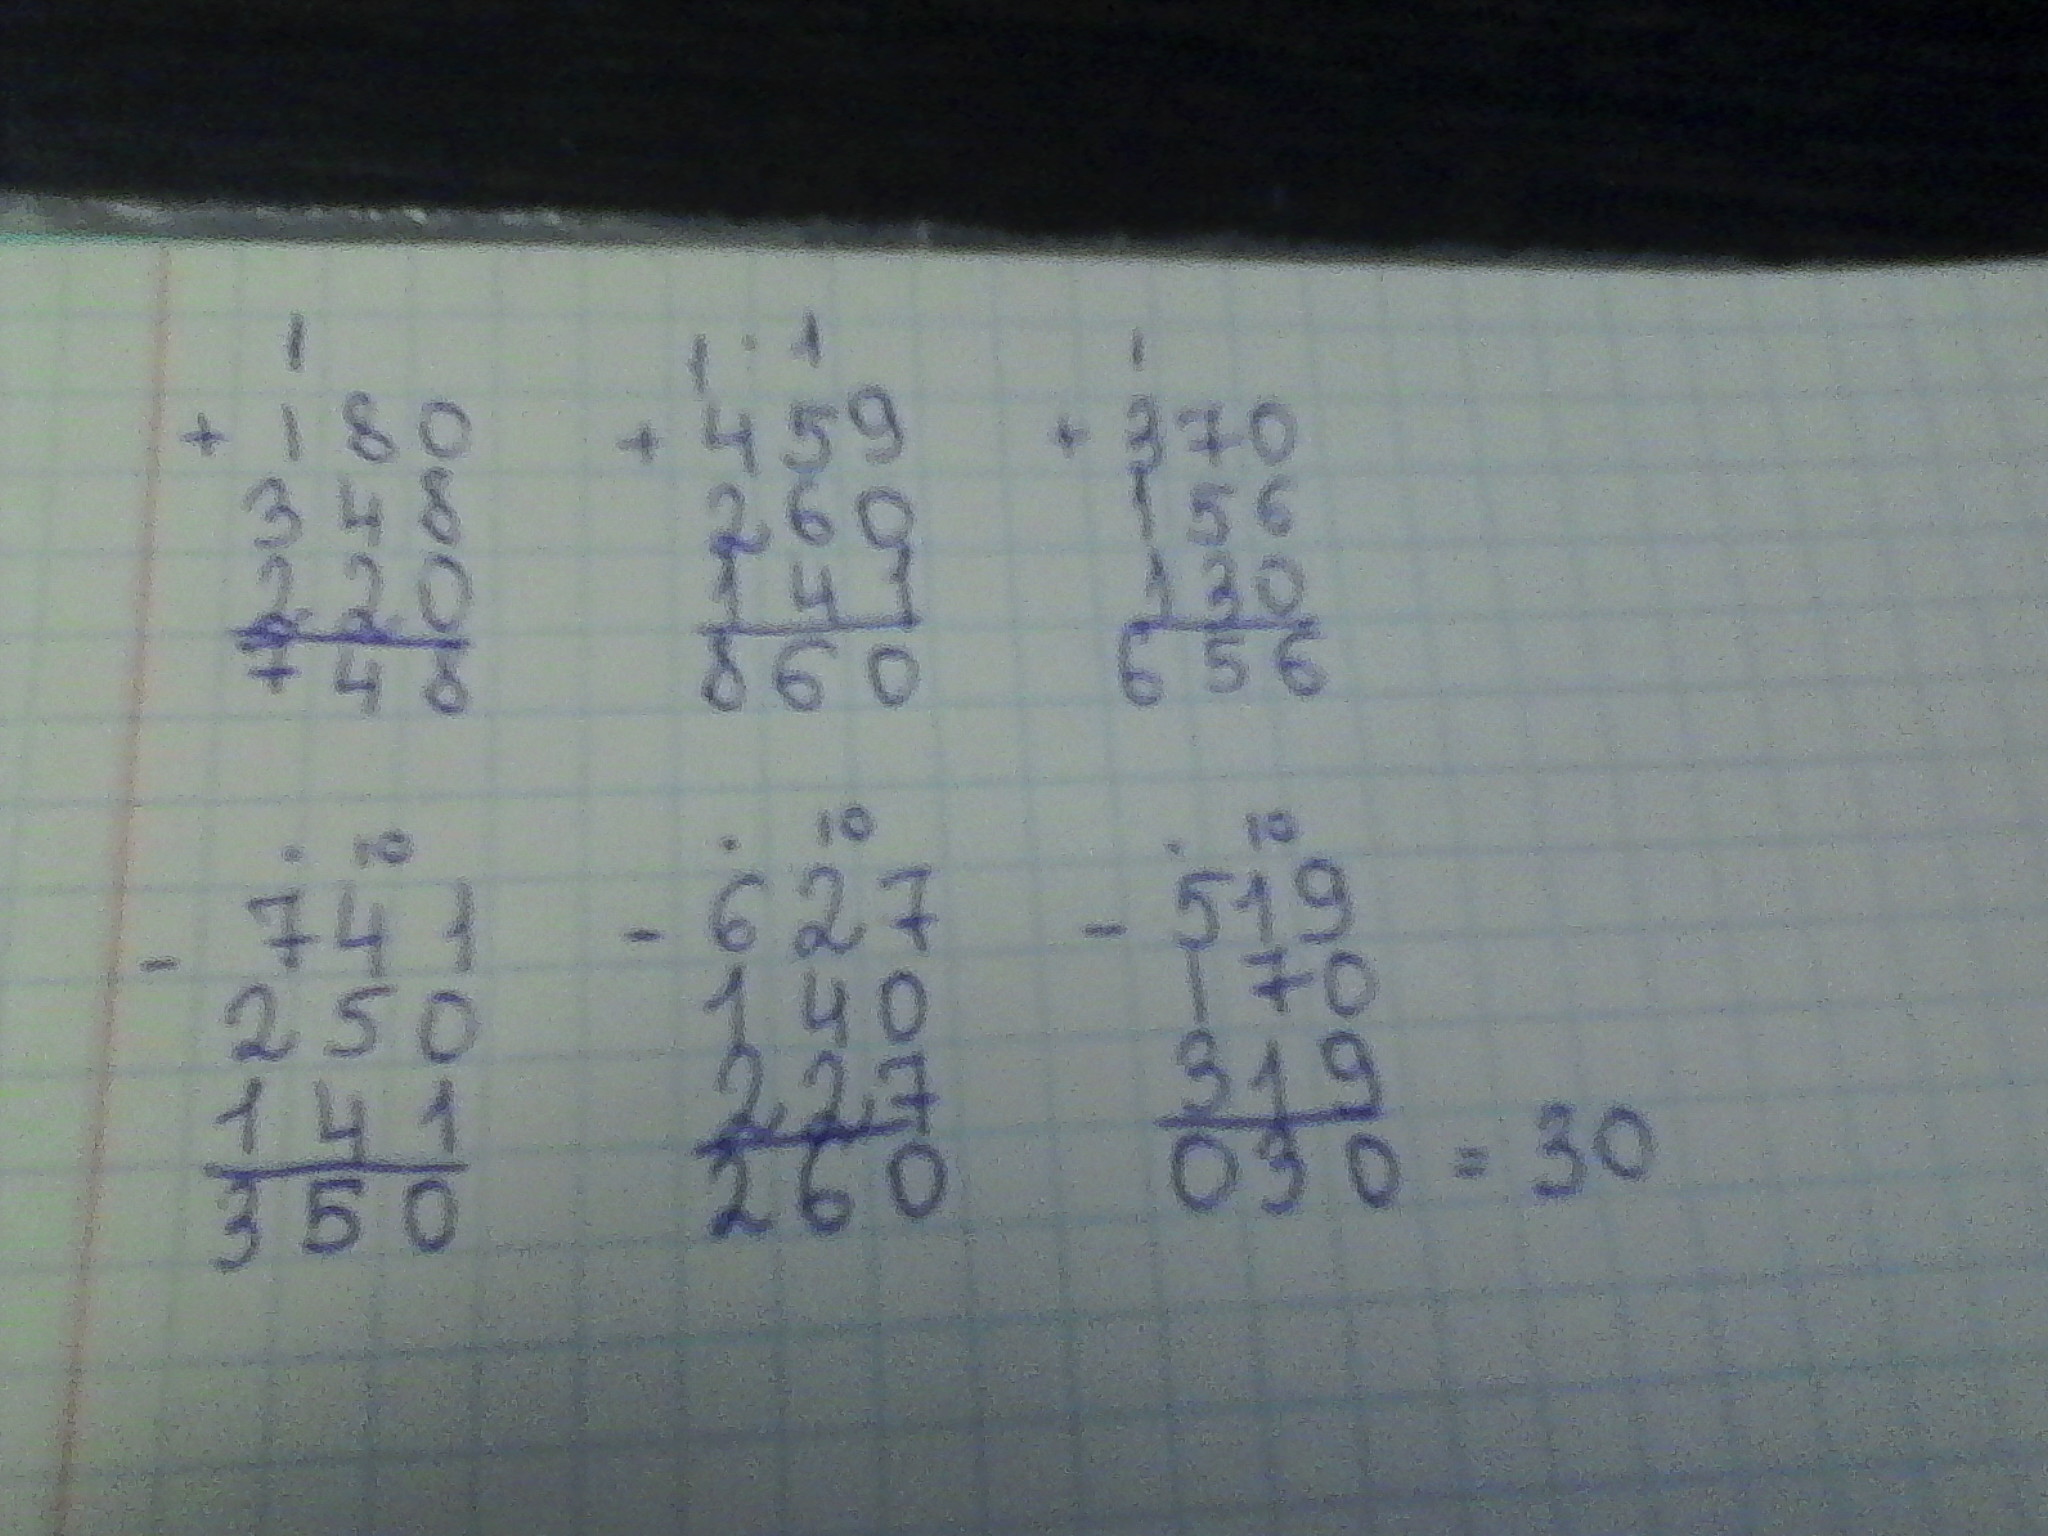 1 1 · 1 1
+ 180 + 459 + 370
348 260 156
220 141 130
748 860 656
· 10 · 10 · 10
- 741 - 627 - 519
250 140 170
141 227 319
350 260 030 = 30